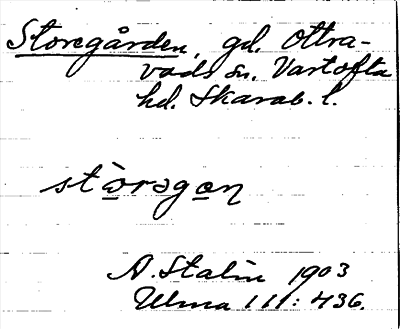 Storegården, gd. Ottra-
vads sn. Vartofta
hd. Skarab. l.
stòrəgan
A. Stalin 1903
Ulma 111:436.